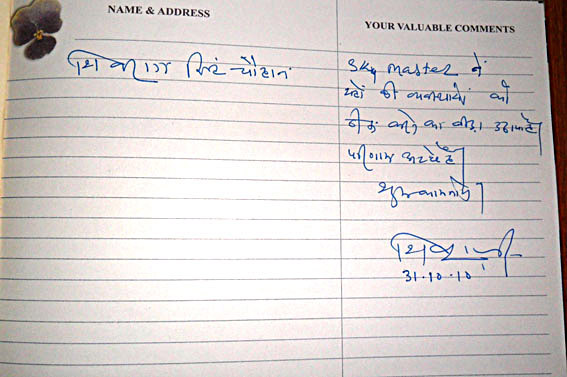 NAME & ADDRESS
YOUR VALUABLE COMMENTS
शिवराज सिंह चौहान
Sky master ने
यहाँ की व्यवस्थायें को
ठीक करने का बीड़ा उठाया है
परिणाम अच्छे है
शुभकामनायें
31.10.10